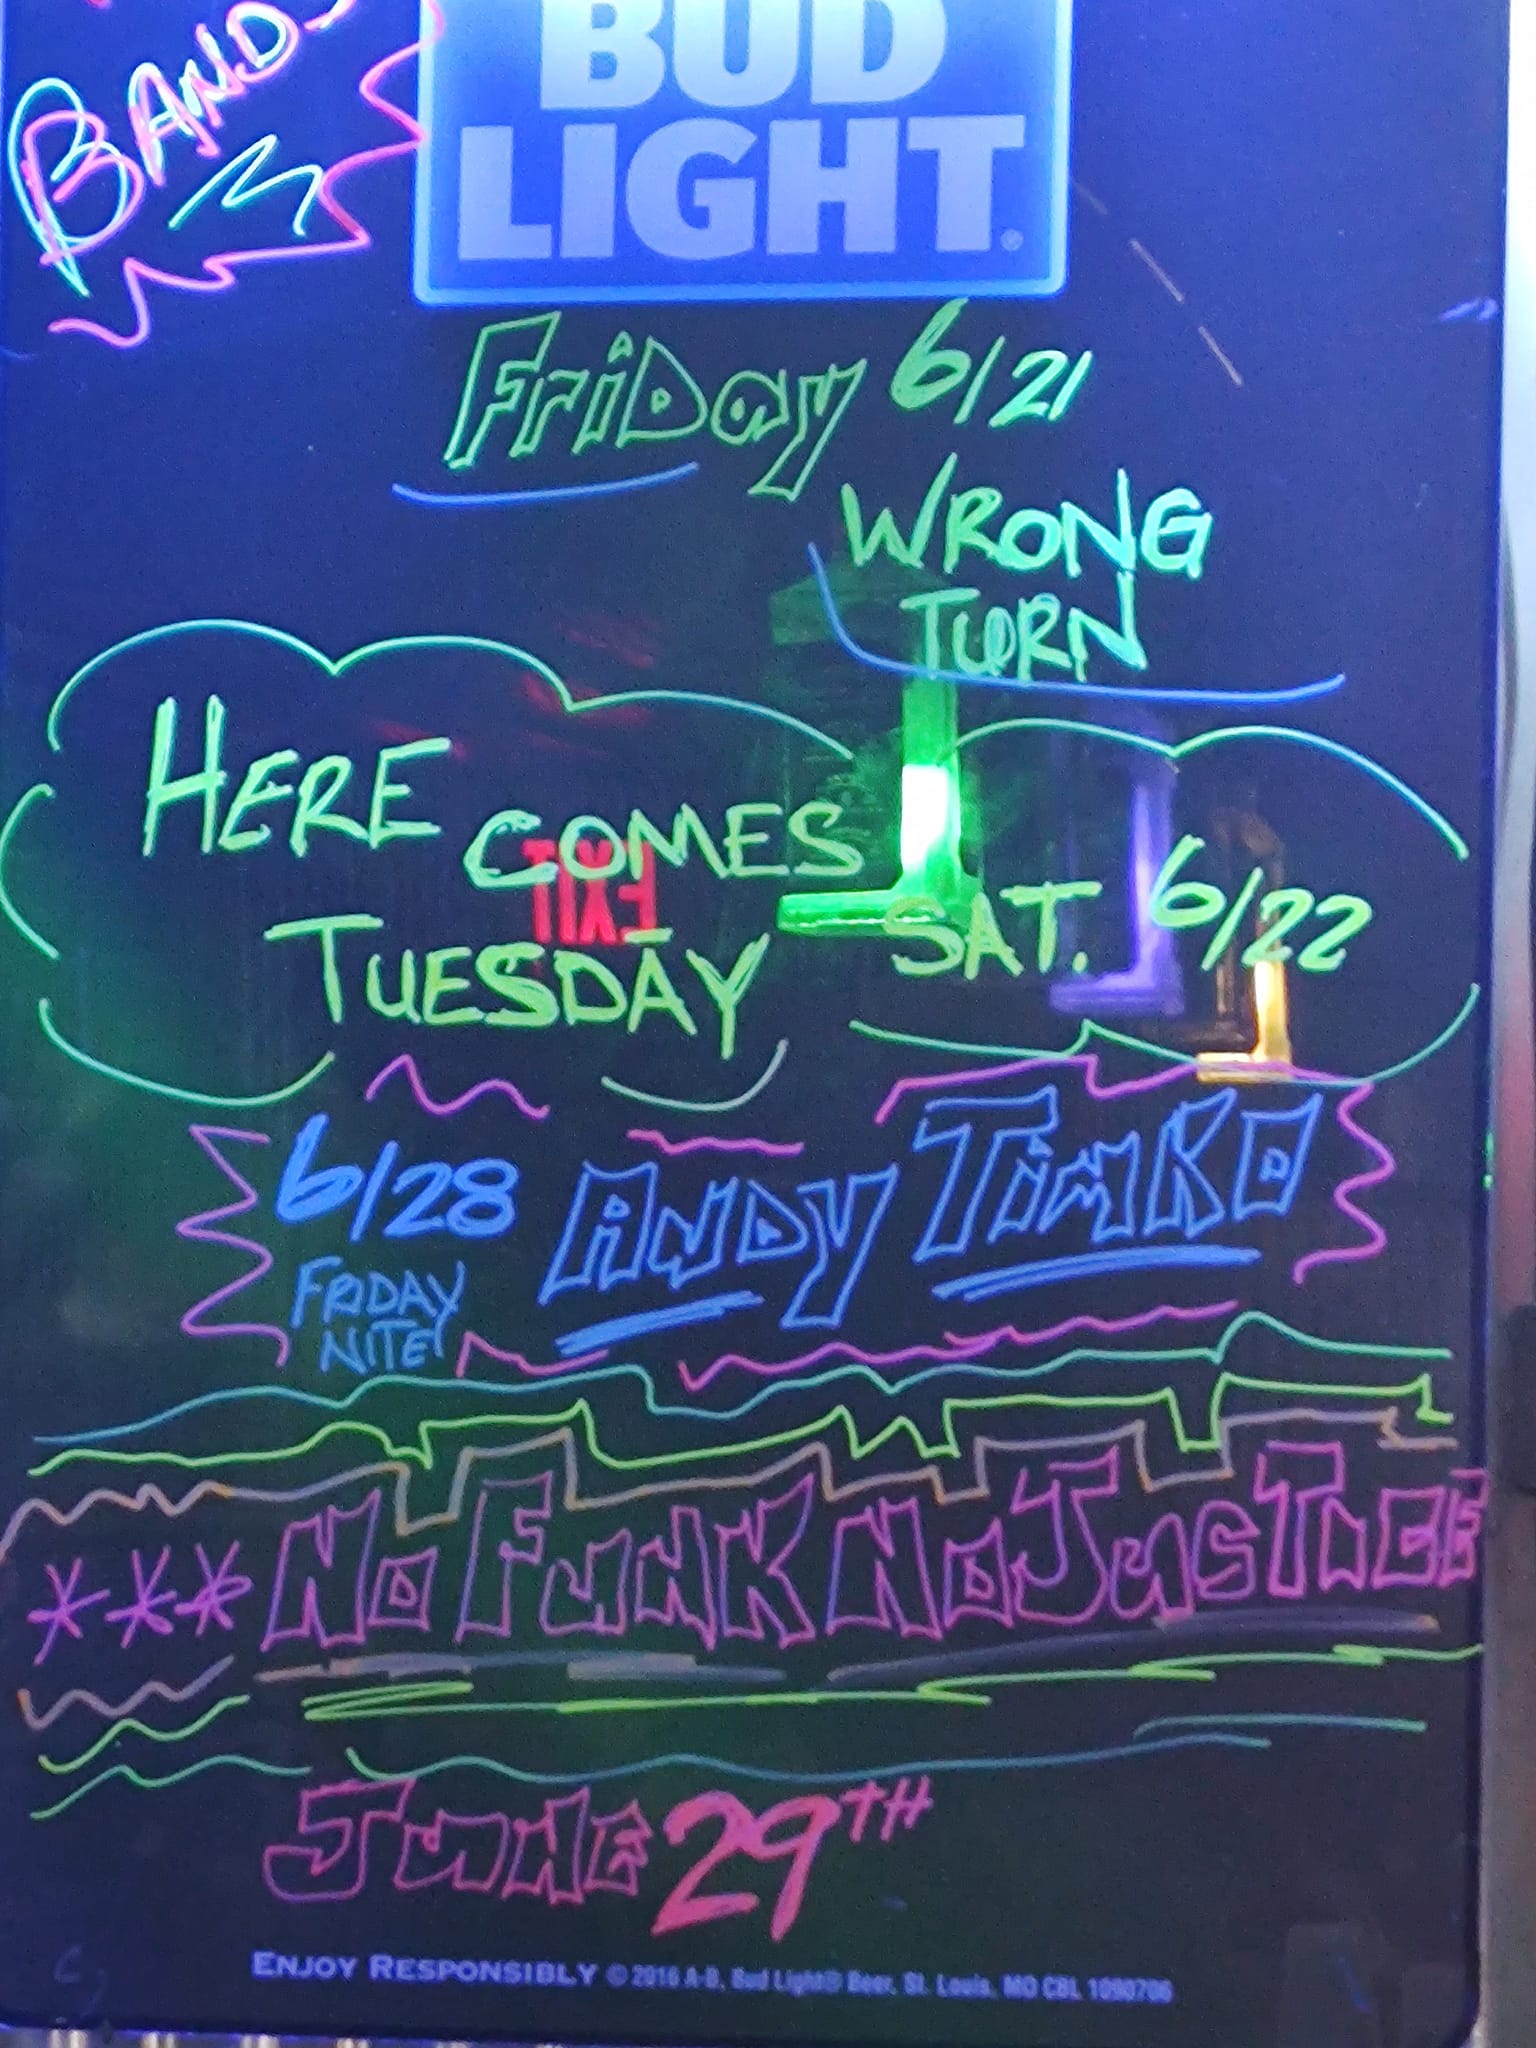 BANDS
BUD
LIGHT®
FriDay 6/21
WRONG
TURN
HERE COMES
TUESDAY SAT. 6/22
EXIT
6/28 ANDY TimKO
FRIDAY
NITE!
*** No FunK No JusTiCE
JuNE 29TH
ENJOY RESPONSIBLY © 2016 A-B, Bud Light® Beer, St. Louis, MO CBL 1090706